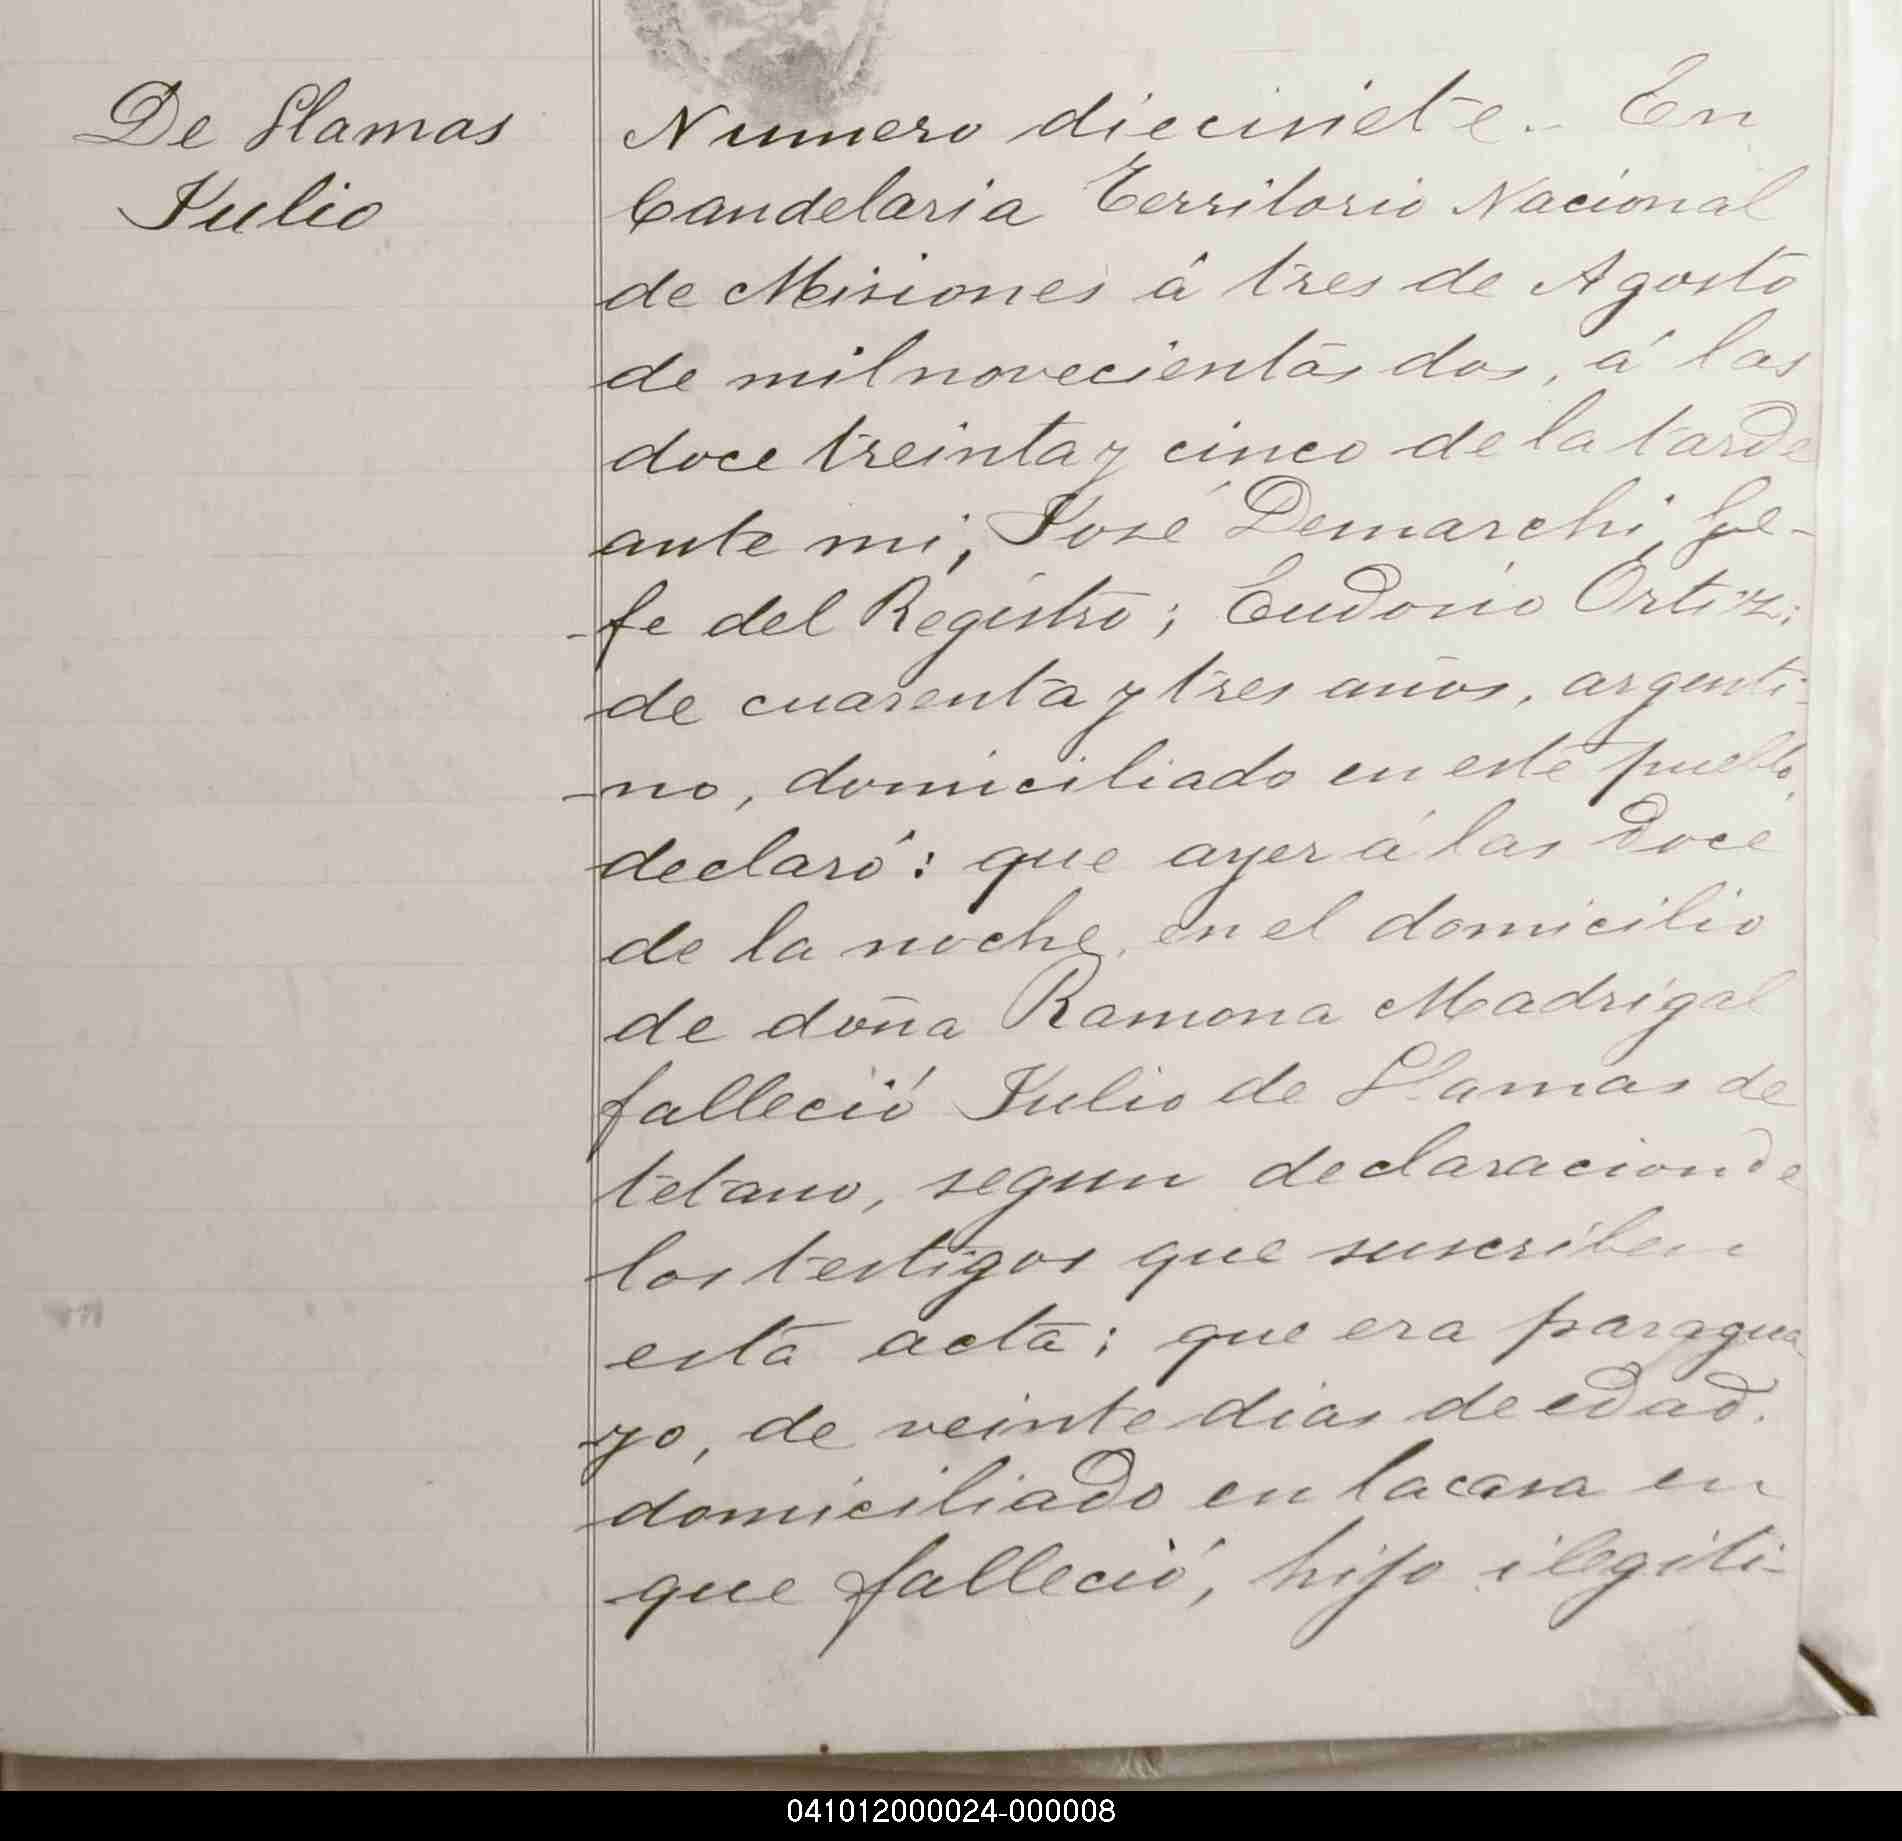 De Llamas
Julio
Numero diecisiete.- En
Candelaria Territorio Nacional
de Misiones á tres de Agosto
de mil novecientos dos, á las
doce treinta y cinco de la tarde
ante mi, José Demarchi, Ge-
-fe del Registro; Eudosio Ortiz;
de cuarenta y tres años, argenti-
-no, domiciliado en este pueblo,
declaró: que ayer á las doce
de la noche, en el domicilio
de doña Ramona Madrigal
falleció Julio de Llamas de
tetano, segun declaracion de
los testigos que suscriben
esta acta; que era paragua
-yo, de veinte dias de edad.
domiciliado en la casa en
que falleció, hijo ilegiti-
041012000024-000008